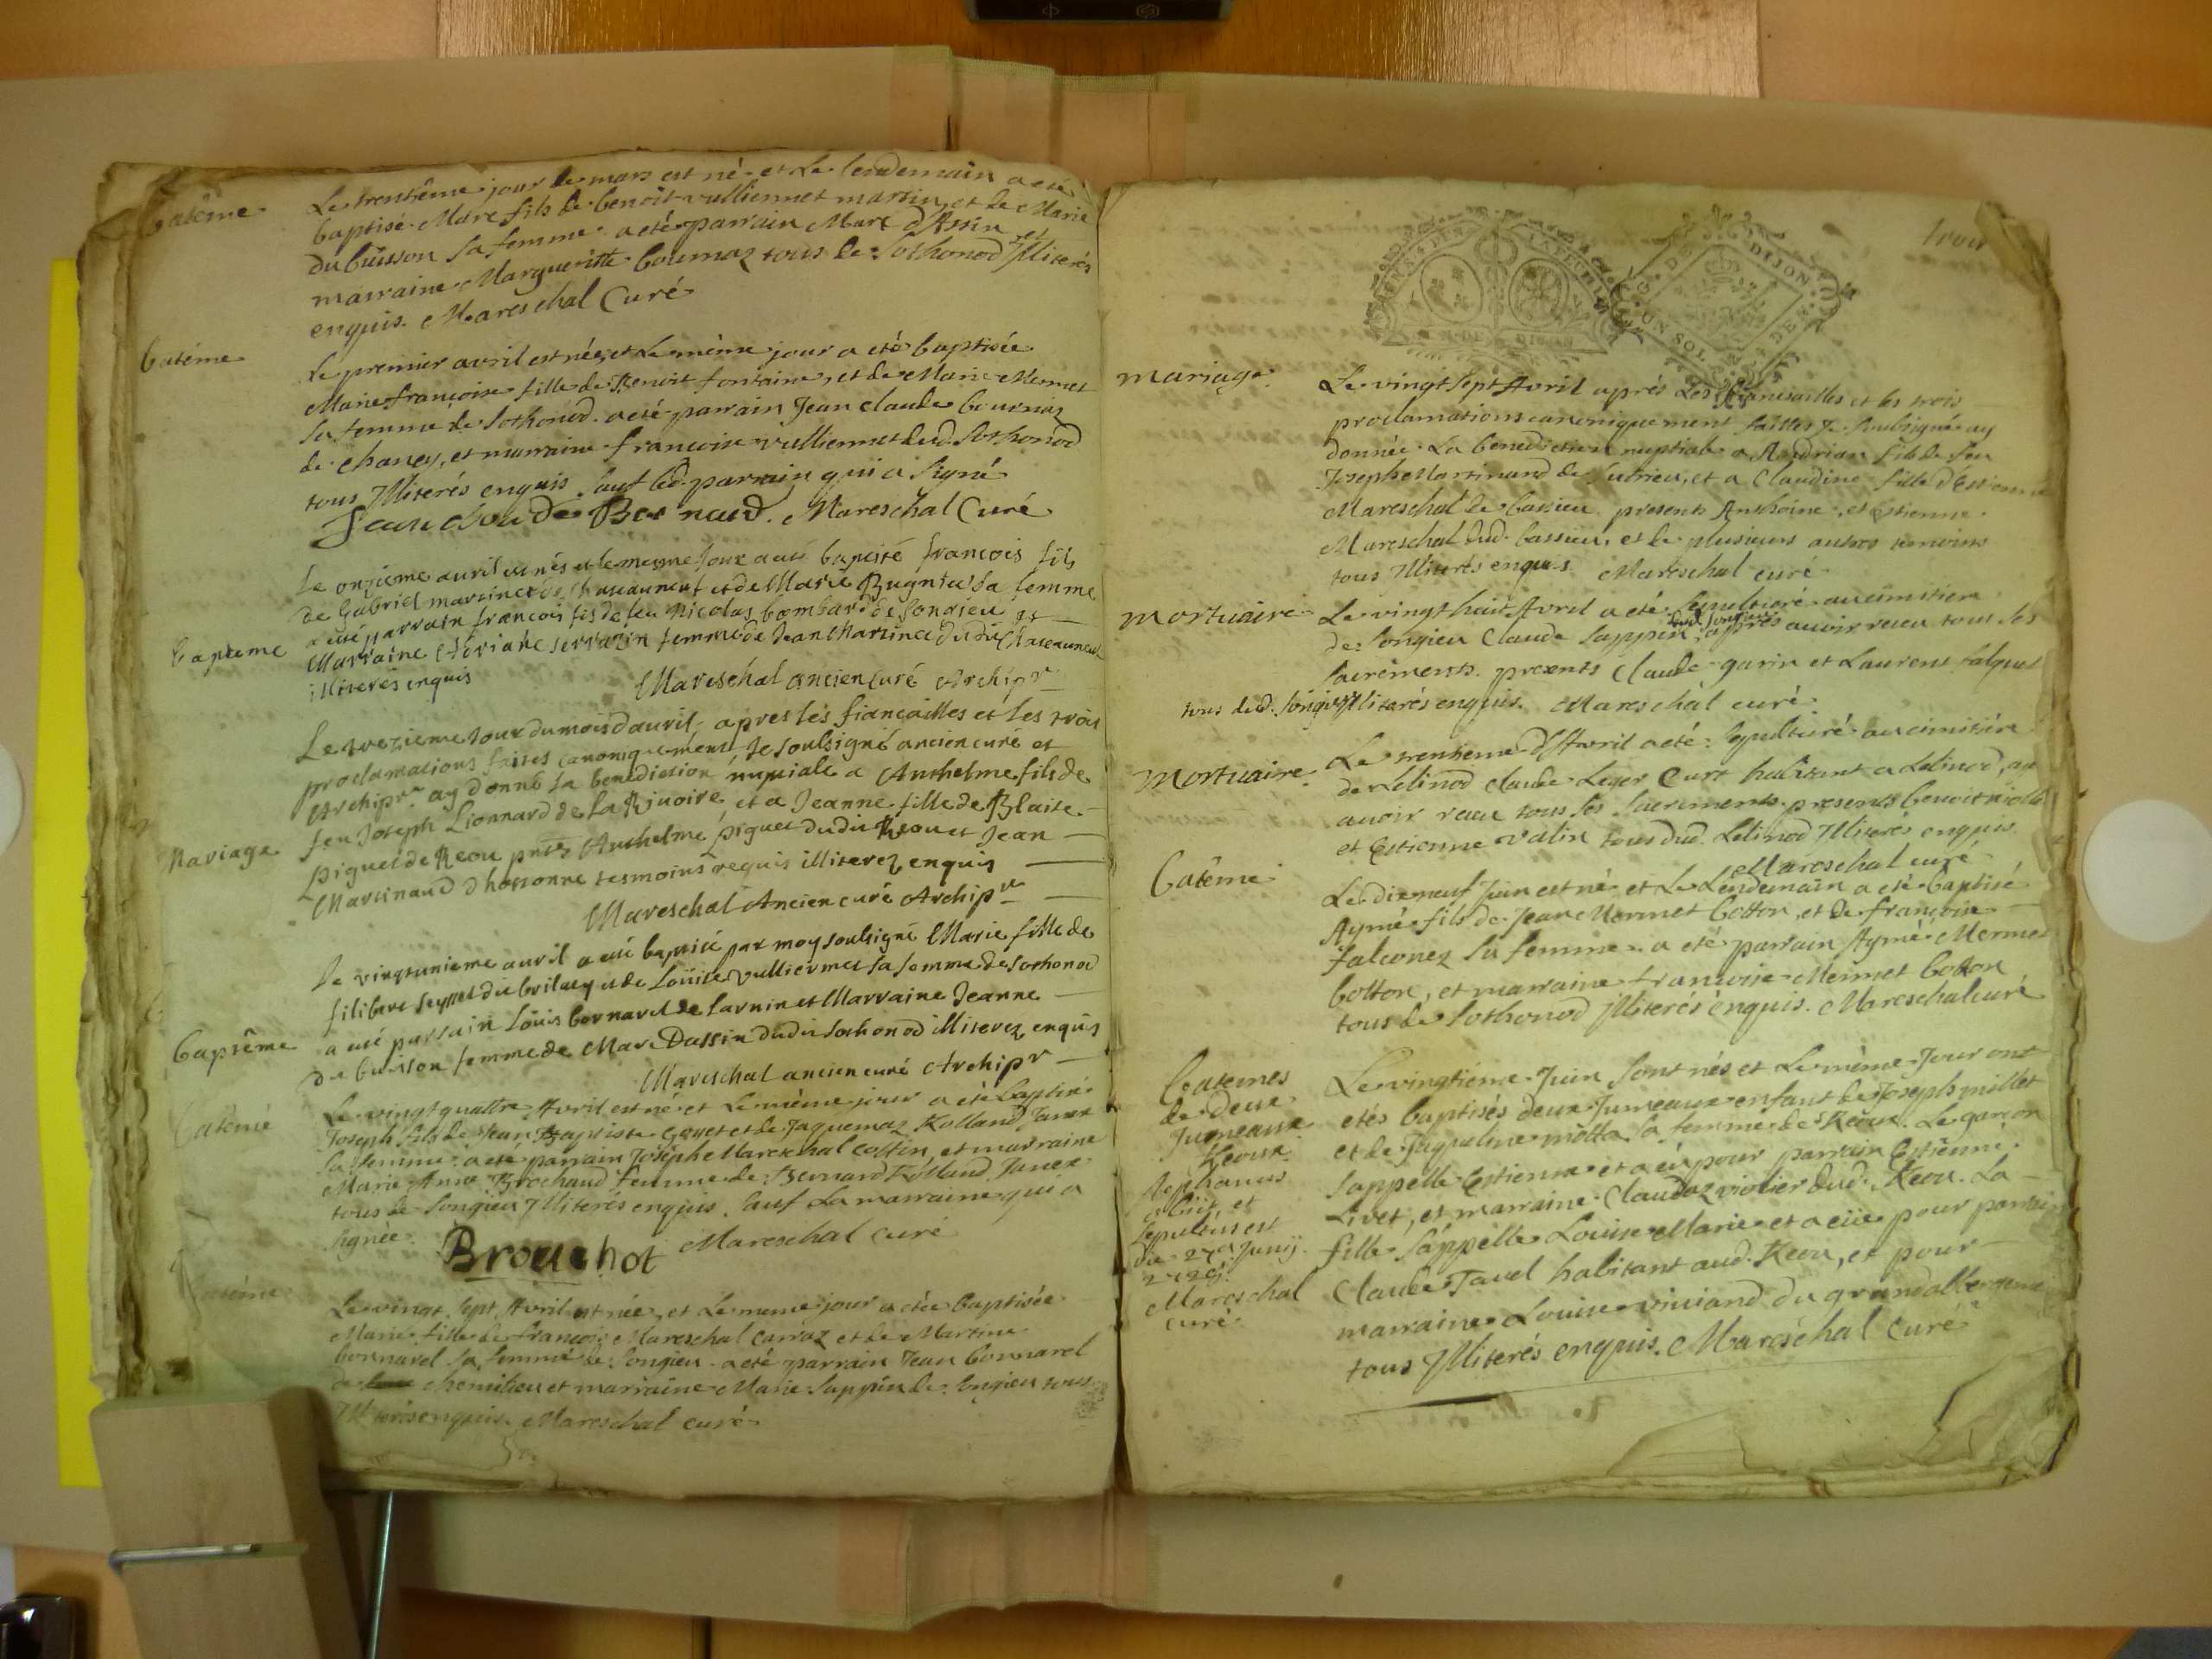 batême
Le trentême jour de mars est né et Le lendemain a eté
baptisé Marc fils de benoit vulliermet martin, et de Marie
du buisson sa femme a eté parrain Marc d'Assin et
marraine Margueritte bournaz tous de Sothonod Illiterés
enquis. Mareschal Curé
batéme
Le premier avril est née, et Le même jour a eté baptisée
Marie françoise fille de Benoit fontaine, et de Marie Mermet
sa femme de Sothonod. a eté parrain Jean claude bournaz
de chaney, et marraine francoise vulliermet dud. Sothonod
tous Illiterés enquis sauf led. parrain qui a signé
Jean Mareschal Curé
bapteme
Le onzieme auril est nés et le mesme Jour a eté baptisé francois fils
de Gabriel martinet de Chateauneuf et de Marie Bugnia sa femme
a eté parrain francois fils de feu Nicolas bombard de Songieu et
Marraine serrazin femme de Jean Martinet dudit Chateauneuf
illiterés enquis
Mareschal ancien Curé Archipr
Mariage
Le trezieme Jour du mois d'auril, apres les fiançailles et les trois
proclamations faites canoniquement Je soulsigné ancien curé et
Archipr ay donné la benediction nuptiale a Anthelme fils de
feu Joseph Lionnard de la Riuoire et a Jeanne fille de Blaise
piguet de Reou pnts Anthelme piguet dudit Reou et Jean
Martinaud d'hotonne tesmoins requis illiterez enquis
Mareschal Ancien curé Archipr
bapsême
Le vingtunieme auril a eté baptisé par moy soulsigné Marie fille de
filibert seyssel du brilney et de Loüise Vulliermet sa femme de Sothonod
a eté parrain Loüis bornarel de Larnin et Marraine Jeanne
de buisson femme de Marc Dassin dudit Sothonod illiterez enquis
Mareschal ancien curé Archipr
batême
Le vingt quattre Avril est né et Le même jour a eté baptisé
Joseph fils de Jean Baptiste Goyet et de Jaquemaz Rolland Janex
sa femme. a eté parrain Joseph Mareschal Cottin, et marraine
Marie Anne Brochaud femme de Bernard Rolland Janex
tous de Songieu Illiterés enquis sauf La marraine qui a
signée. Brouchot Mareschal curé
batême
Le vingt sept Avril est née, et Le meme jour a etée baptisée
Marie fille de françois Mareschal Carraz et de Martine
bonnarel sa femme de Songieu. a eté parrain Jean bonnarel
de chemilieu et marraine Marie Sappin de Songieu tous
Illiterés enquis. Mareschal curé
trois
G. DE DIJON
UN SOL
mariage
Le vingt sept Avril aprés Les fiansailles et les trois
proclamations canoniquement faittes Je soubsigné ay
donnée La benediction nuptiale a Andrian fils de feu
Joseph Martinand de Sutrieu, et a Claudine fille d'Estienne
Mareschal de bassieu presents Anthoine, et Estienne
Mareschal dud. bassieu, et de plusieurs autres temoins
tous Illiterés enquis Mareschal curé
mortuaire
Le vingt huit Avril a eté sepulturé au cimitiere
de Songieu Claude Sappin dud. Songieu apprés auoir receu tous ses
sacréments. presents Claude garin et Laurent falquet
tous dud. Songieu Illiterés enquis. Mareschal curé
Mortuaire
Le trentieme d'Avril a eté sepulturé au cimitiére
de Lilinod Claude Leger Curt habitant a Lilinod, ap
auoir receu tous ses sacrements. presents benoit
et Estienne Valin tous dud. Lilinod Illiterés enquis
Mareschal curé
batême
Le dixneuf Juin est né et Le Lendemain a eté baptisé
Aymé fils de Jean Mermet botton, et de françoise
falconez sa femme. a eté parrain Aymé Mermet
botton, et marraine françoise Mermet botton
tous de Sothonod Illiterés enquis. Mareschal curé
batemes
de deux
Jumeaux
Reoux
Stephanus
obiit, et
sepultus est
die 27a Junij
Mareschal
curé
Le vingtiéme Juin sont nés et Le même Jour ont
etés baptisés deux Jumeaux enfant de Joseph millet
et de Jaqueline môtta sa femme de Reoux. Le garçon
s'appelle Estienne et a eü pour parrain Estienne
Livet, et marraine Claudaz violier dud. Reou. La
fille s'appelle Louise Marie et a eüe pour parrain
Claude Tavel habitant aud. Reou, et pour
marraine Louise viviand du grand abergement
tous Illiterés enquis. Mareschal curé